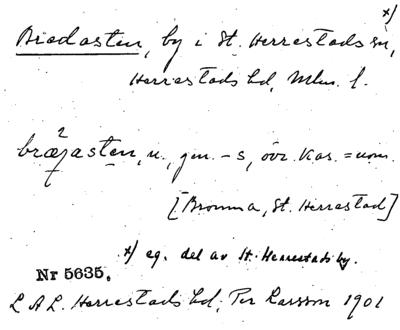 x)
Bredasten, by i St. Herrestads sn,
Herrestads hd, Mlm. l.
bræ²ɟasten, n., gen. -s, övr. kas. = nom.
[Bromma, St. Herrestad]
x) eg. del av St. Herrestads by.
Nr 5635.
L A L. Herrestads hd; Per Larsson 1901